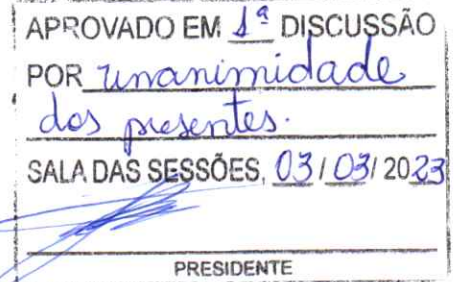 APROVADO EM 1ª DISCUSSÃO
POR unanimidade
dos presentes.
SALA DAS SESSÕES, 03 / 03 / 2023
PRESIDENTE